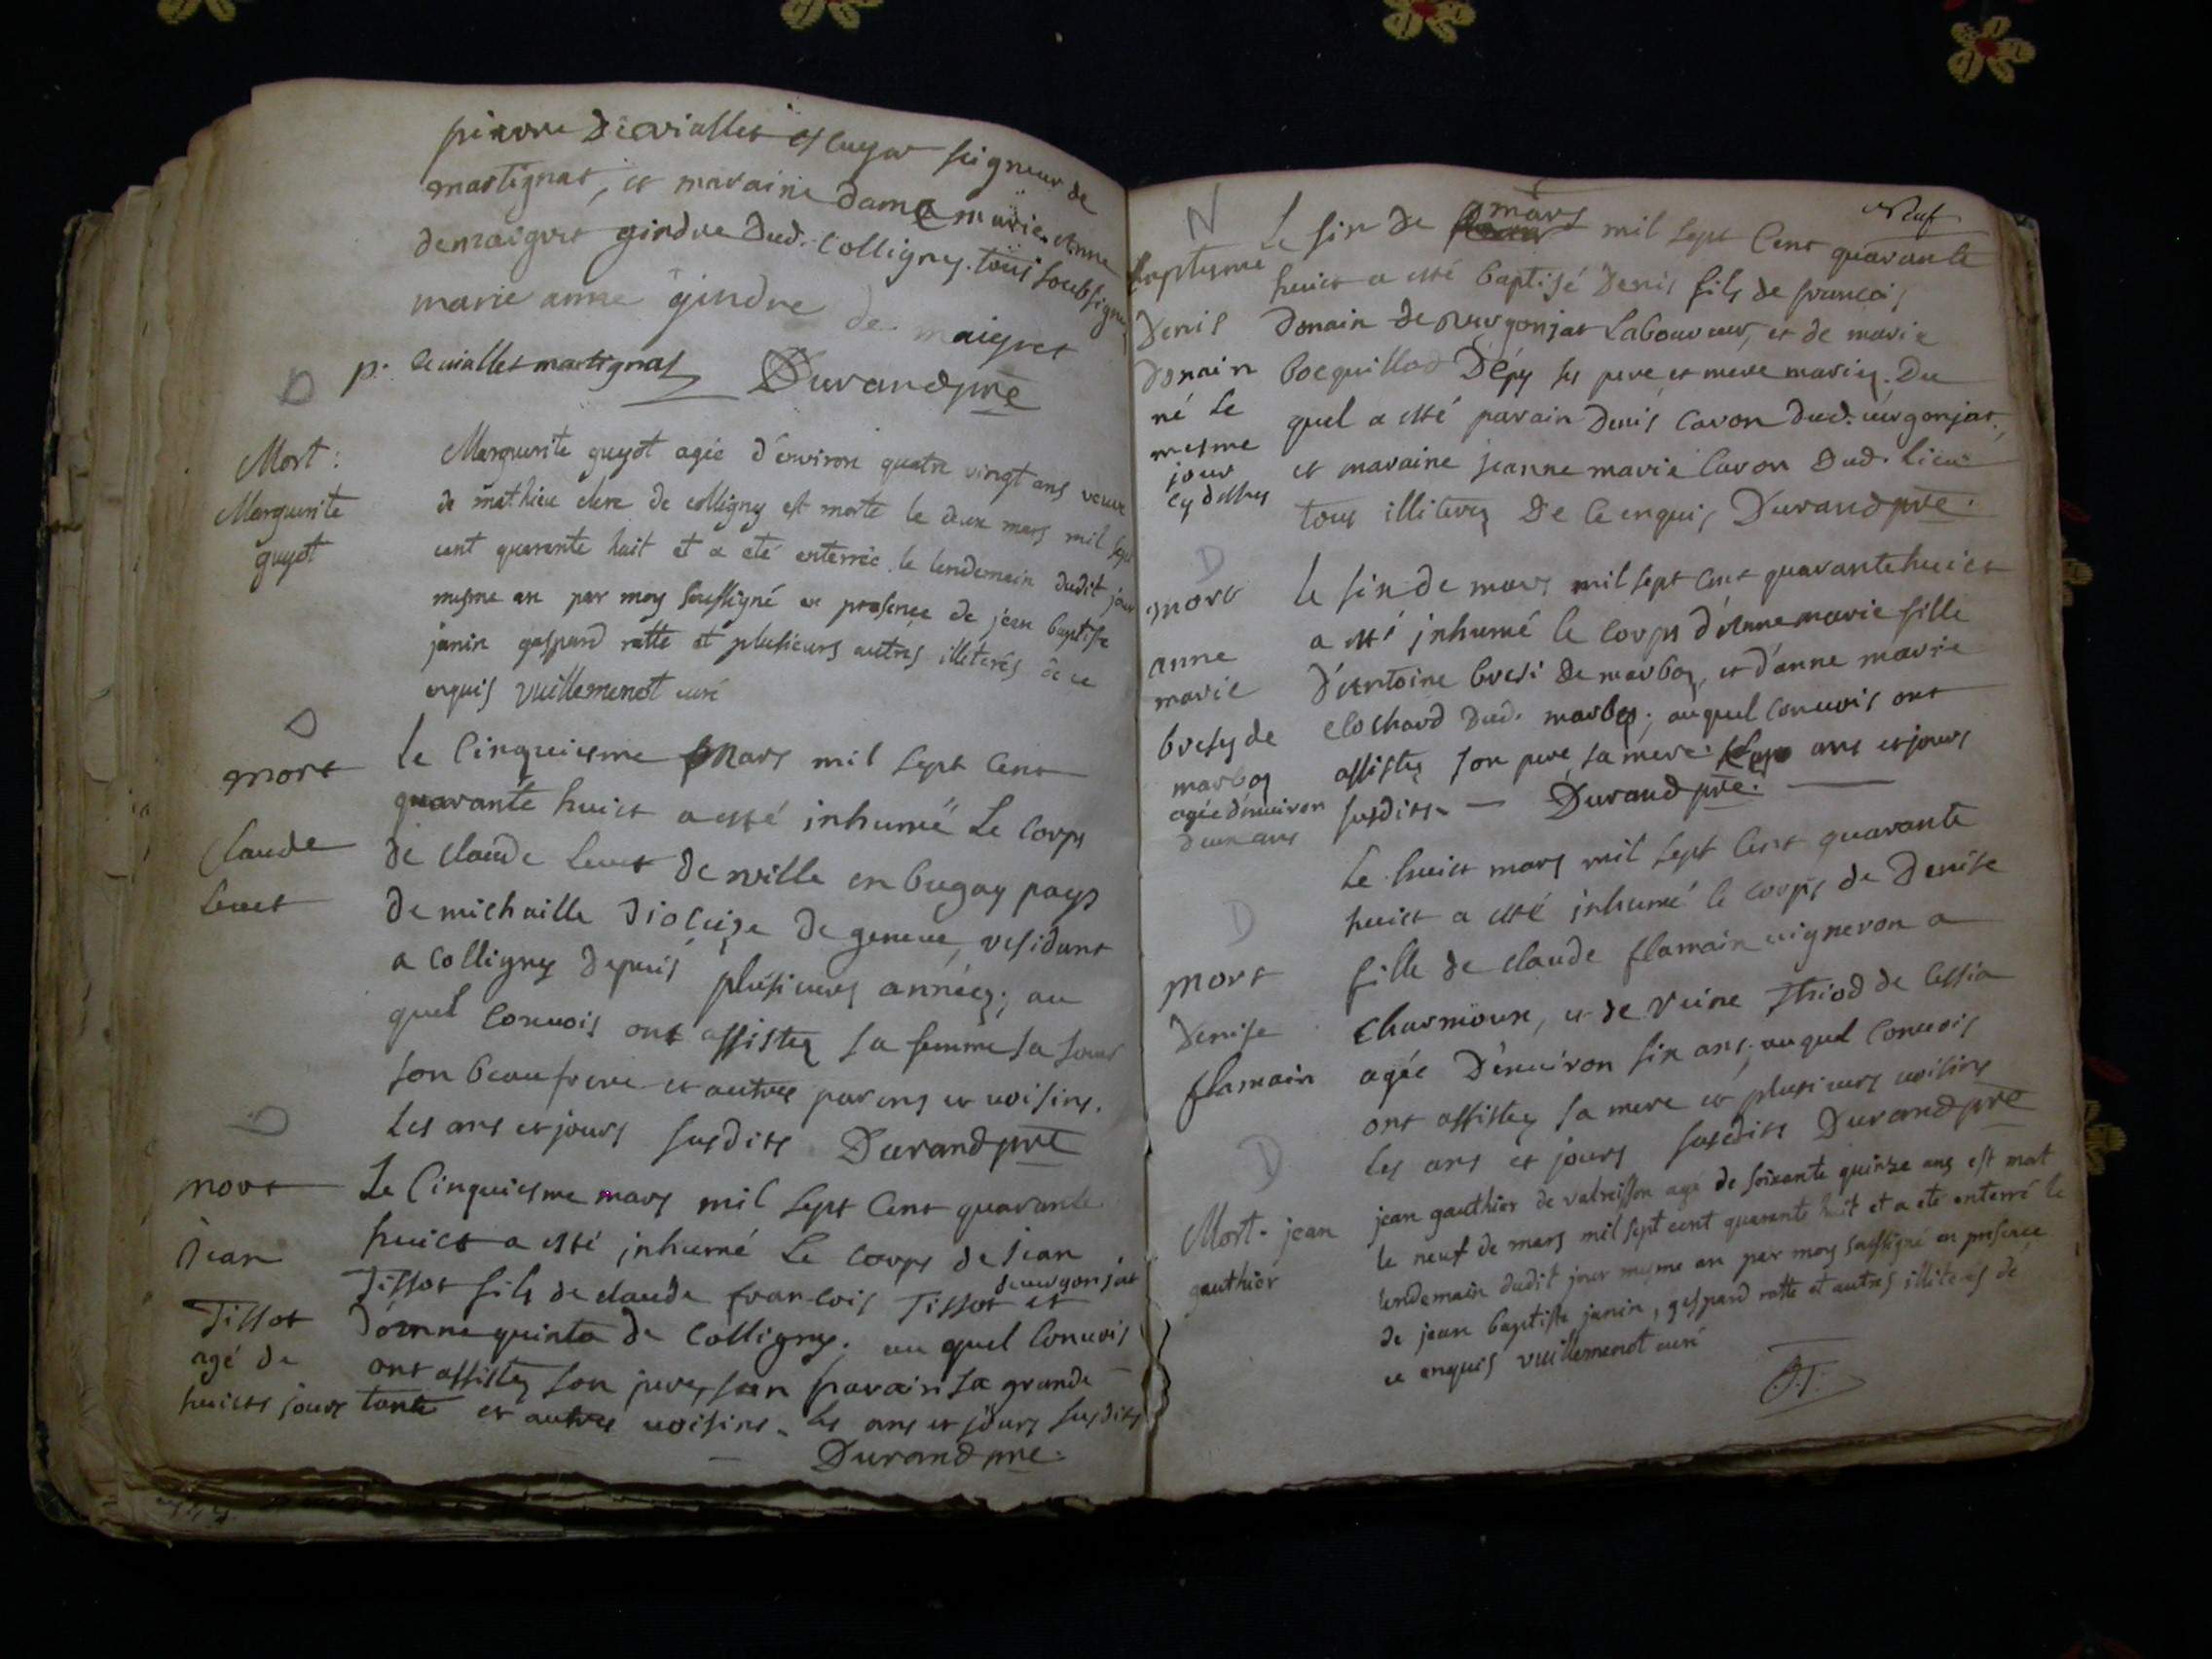 pierre Devialles escuyer seigneur de
martignat, et maraine dame marie Anne
demaigret gindre dud. Colligny. tous soubsignez
marie anne gindre de maigret
p. devialles martignas Durand pre
D
Mort :
Marguerite
guyot
Marguerite guyot agée d'environ quatre vingt ans veuve
de mathieu clerc de colligny est morte le deux mars mil sept
cent quarante huit et a eté enterrée le lendemain dudit jour
mesme an par moy soussigné en presence de jean baptiste
janin gaspard ratte et plusieurs autres illiterés de ce
enquis vuillemenot curé
D
mort
Claude
Le Cinquiesme Mars mil sept Cent
quarante huict a esté inhumé Le Corps
de claude de ville en bugay pays
de michaille Diocese de geneve, residant
a Colligny Depuis plusieurs années; au
quel Convois ont assistez sa femme sa soeur
son beaufrere et autres parens et voisins.
Les ans et jours susdits Durand pre
D
mort
Jean
Tissot
agé de
huicts jours
Le Cinquiesme mars mil sept Cent quarante
huict a esté inhumé Le corps de Jean
Tissot fils de claude francois Tissot deuergonjat et
de Colligny; au quel Convois
ont assistez son pere, son parain sa grande
tante et autres voisins. les ans et jours susdits
Durand pre.
Neuf
N
baptesme
Denis
Donain
né le
mesme
jour
cy dessus
Le six de mars mil sept Cent quarante
huict a esté baptisé Denis fils de francois
Donain de vergonjat Laboureur, et de marie
bocquillod D'épy ses pere et mere mariez. Du
quel a esté parain Denis Cavon dud. vergonjat,
et maraine jeanne marie Cavon Dud. Lieu
tous illiterez De Ce enquis Durand pre.
D
mort
anne
marie
bresy de
marboz
agée d'enuiron
deux ans
le six de mars mil sept Cent quarante huict
a esté inhumé le Corps d'Anne marie fille
D'Antoine bresi de marboz, et d'anne marie
clochard Dud. marboz; auquel Convois ont
assistez son pere sa mere. ans et jours
susdits. Durand pre.
D
mort
Denise
flamain
Le huict mars mil sept Cent quarante
huict a esté inhumé le corps de Denise
fille de claude flamain vigneron a
Charmoux, et de Reine Thiod de Cessia
agée D'enuiron six ans; auquel Convois
ont assistez sa mere et plusieurs voisins
les ans et jours susdits Durand pre
D
Mort. jean
gauthier
jean gauthier de valreisson agé de soixante quinze ans est mort
le neuf de mars mil sept cent quarante huit et a eté enterré le
lendemain dudit jour mesme an par moy soussigné en presence
de jean baptiste janin, gaspard ratte et autres illiterés de
ce enquis vuillemenot curé